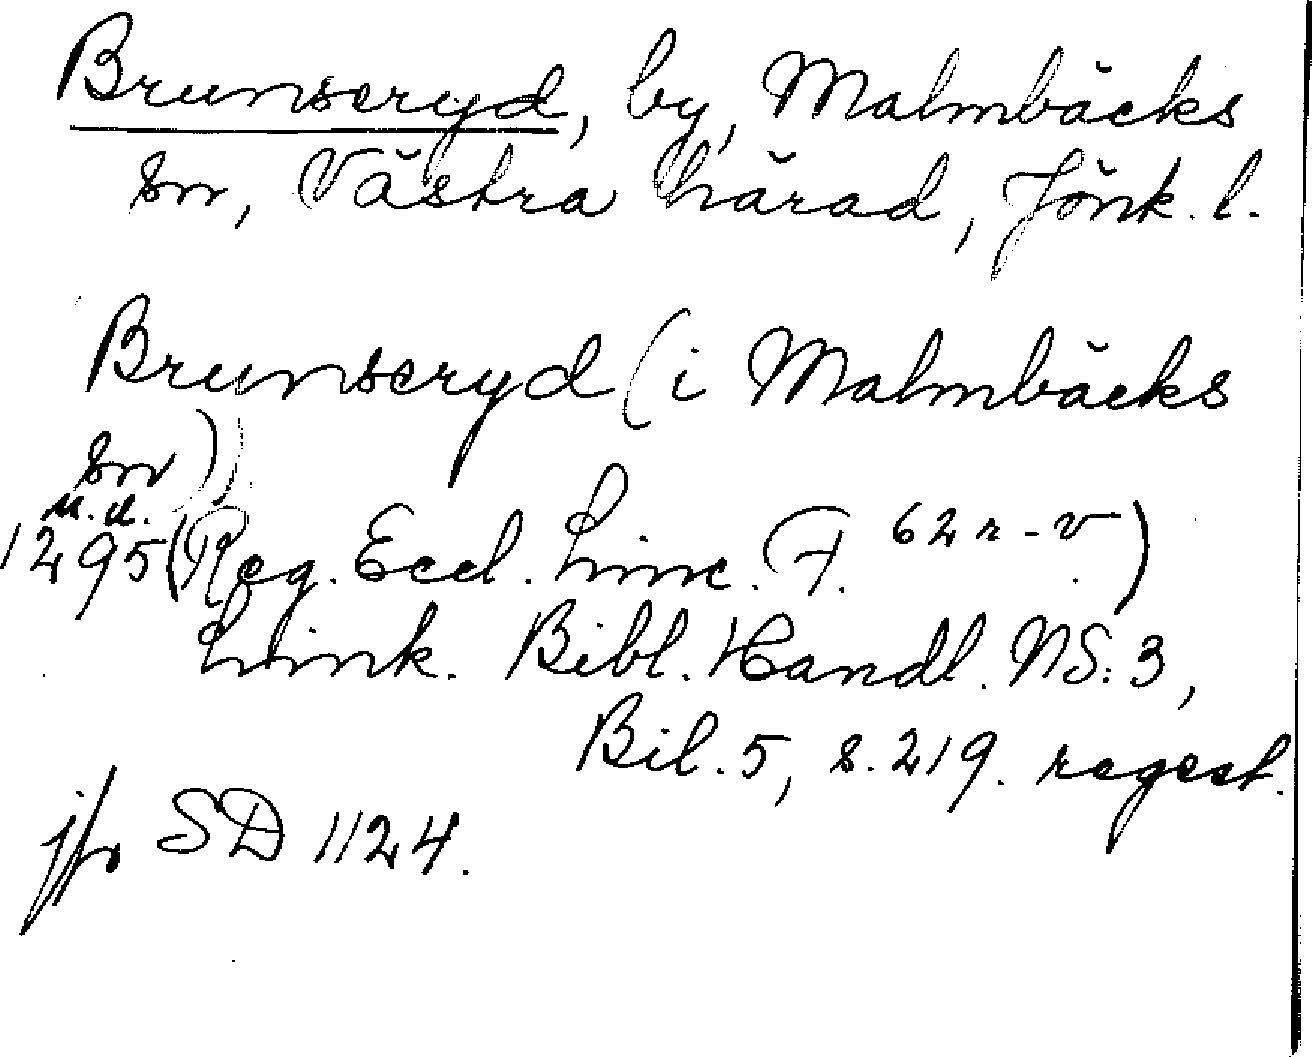 Brunseryd, by, Malmbäcks
sn, Västra härad, Jönk. l.
Brunseryd (i Malmbäcks
sn)
u.d.
1295 (Reg. Eccl. Linc. F. 62 r-v)
Link. Bibl. Handl. NS. 3,
Bil. 5, s. 219. regest.
jfr SD 1124.